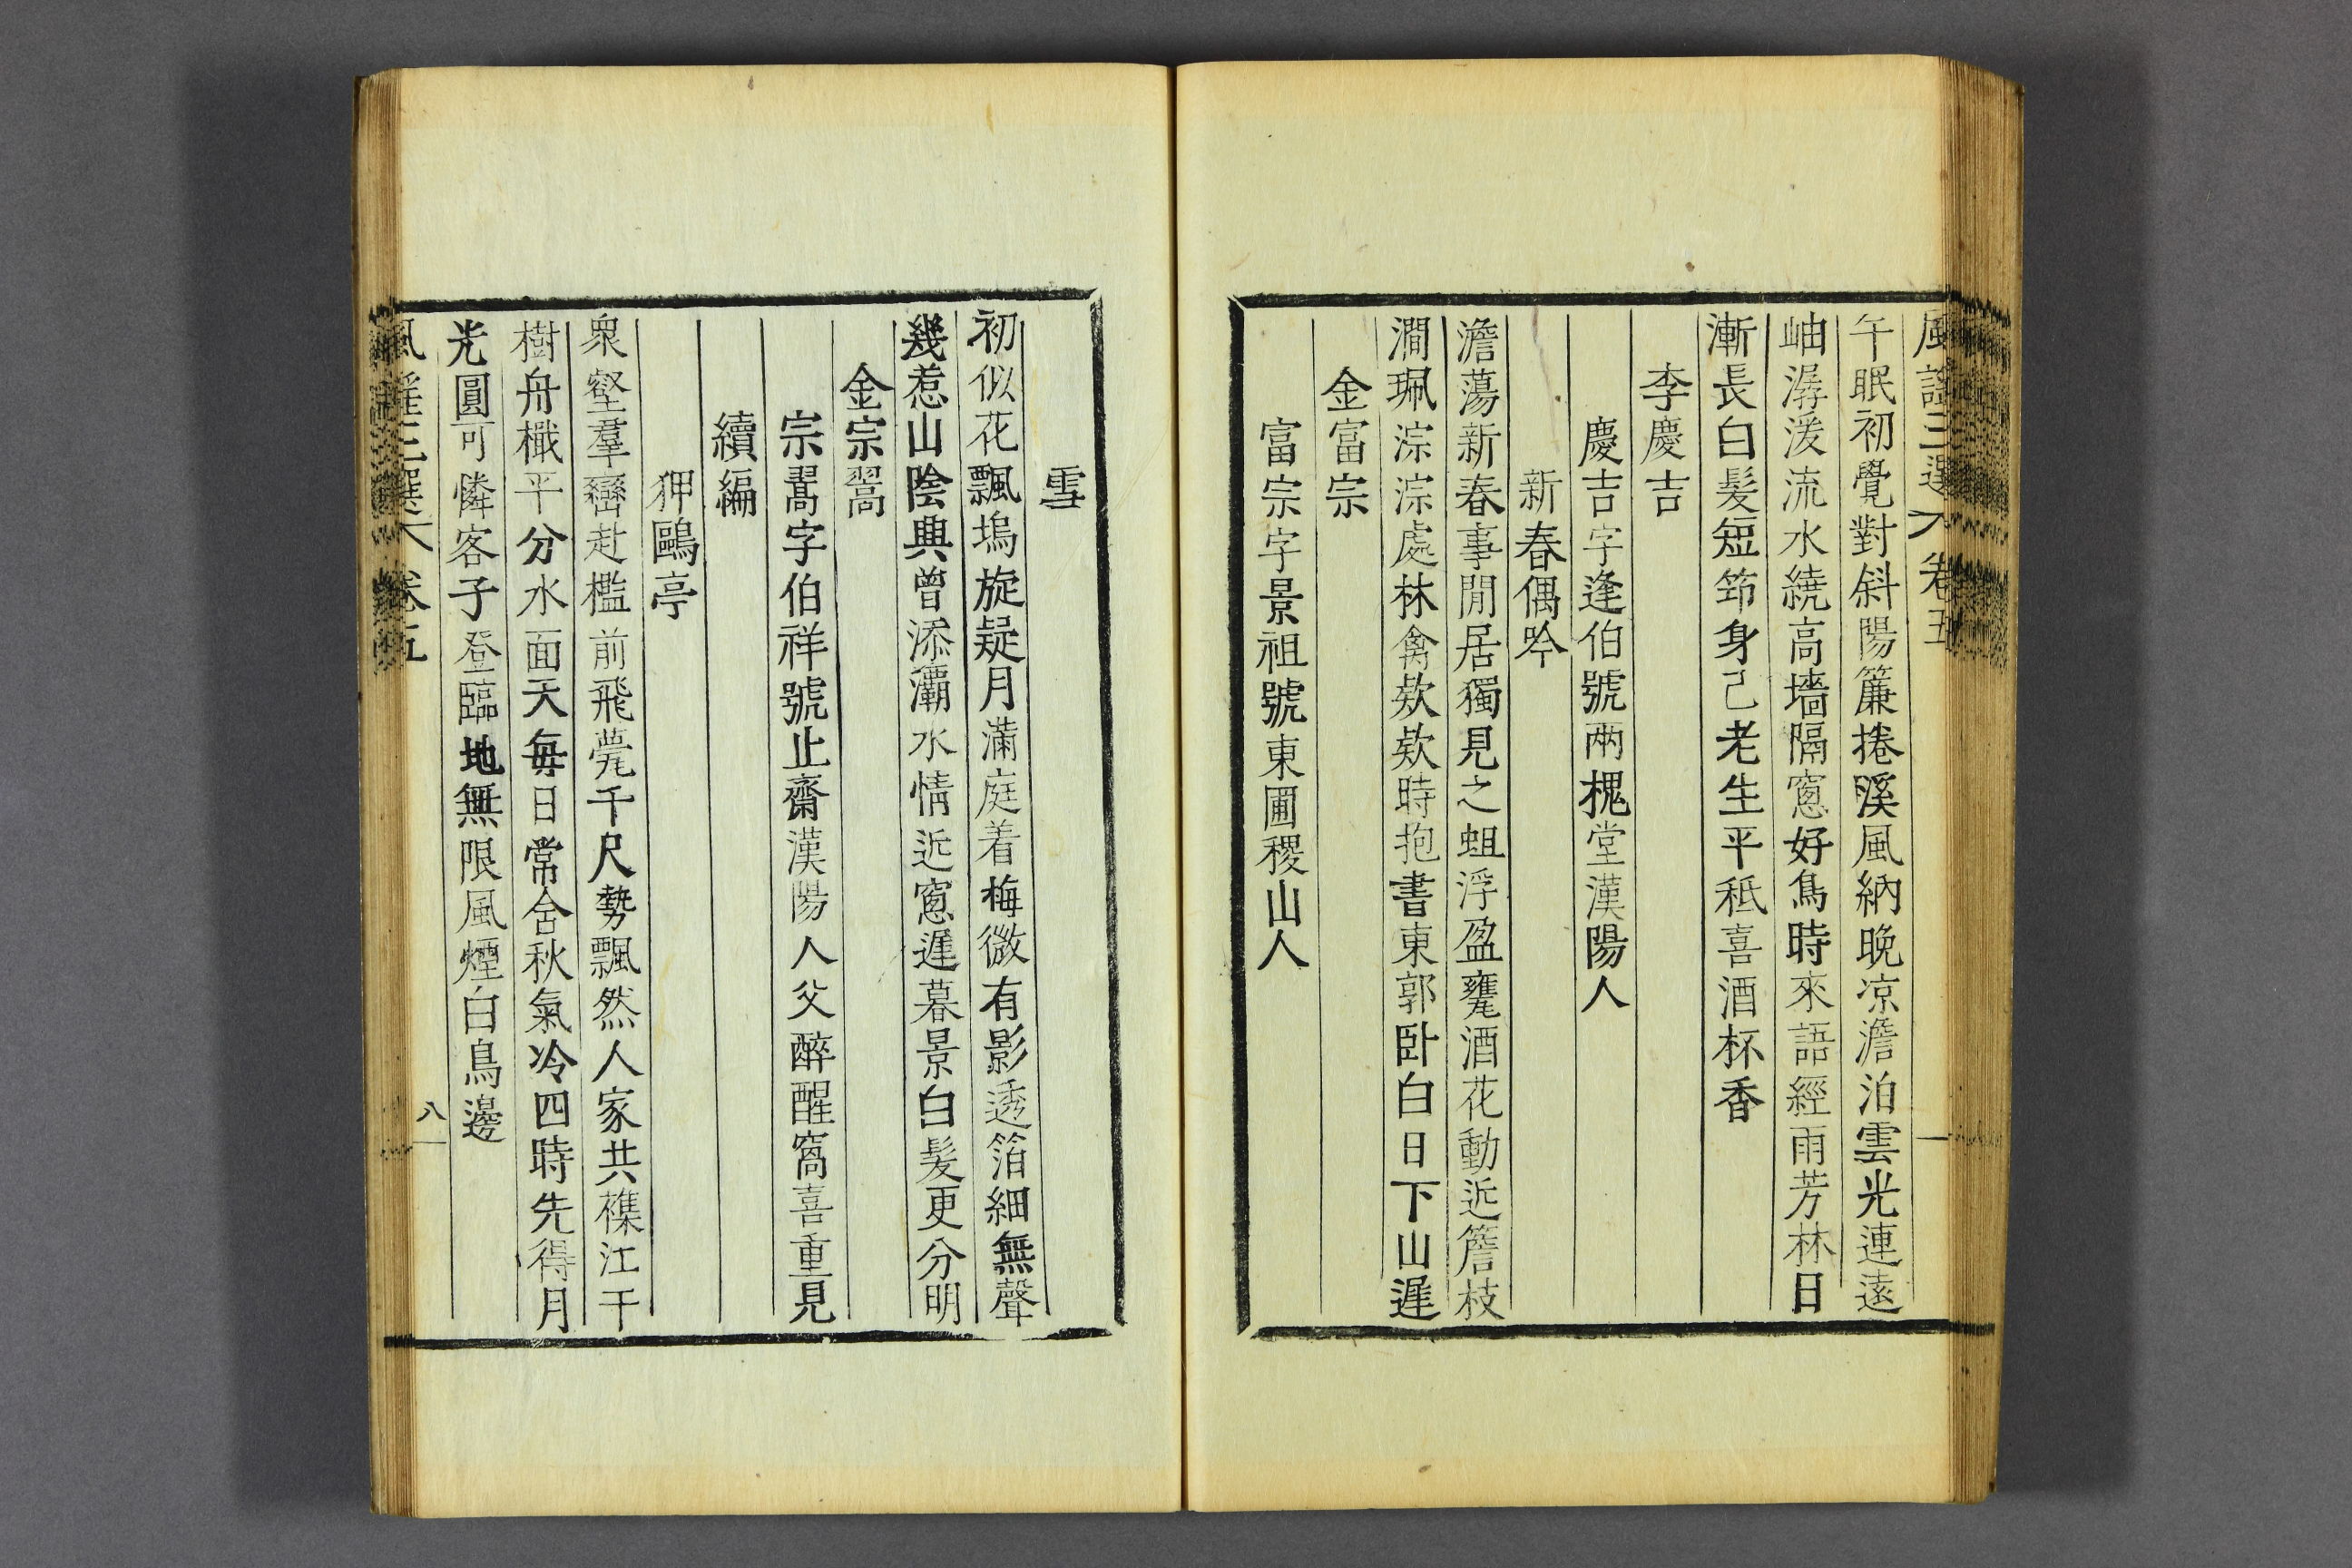 風謠三選 卷五
午眠初覺對斜陽簾捲溪風納晚凉澹泊雲光連遠
岫潺湲流水繞高墻隔窓好鳥時來語經雨芳林日
漸長白髮短筇身已老生平秪喜酒杯香
李慶吉
慶吉字逢伯號兩槐堂漢陽人
新春偶吟
澹蕩新春事閒居獨見之蛆浮盈甕酒花動近簷枝
澗珮淙淙處林禽欵欵時抱書東郭卧白日下山遲
金富宗
富宗字景祖號東圃稷山人
雪
初似花飄塢旋疑月滿庭着梅微有影透箔細無聲
幾惹山陰興曾添灞水情近窓遲暮景白髮更分明
金宗翯
宗翯字伯祥號止齋漢陽人父醉醒窩喜重見
續編
狎鷗亭
衆壑羣巒赴檻前飛甍千尺勢飄然人家共襍江干
樹舟檝平分水面天每日常含秋氣冷四時先得月
光圓可憐客子登臨地無限風煙白鳥邊
風謠三選 卷五
八